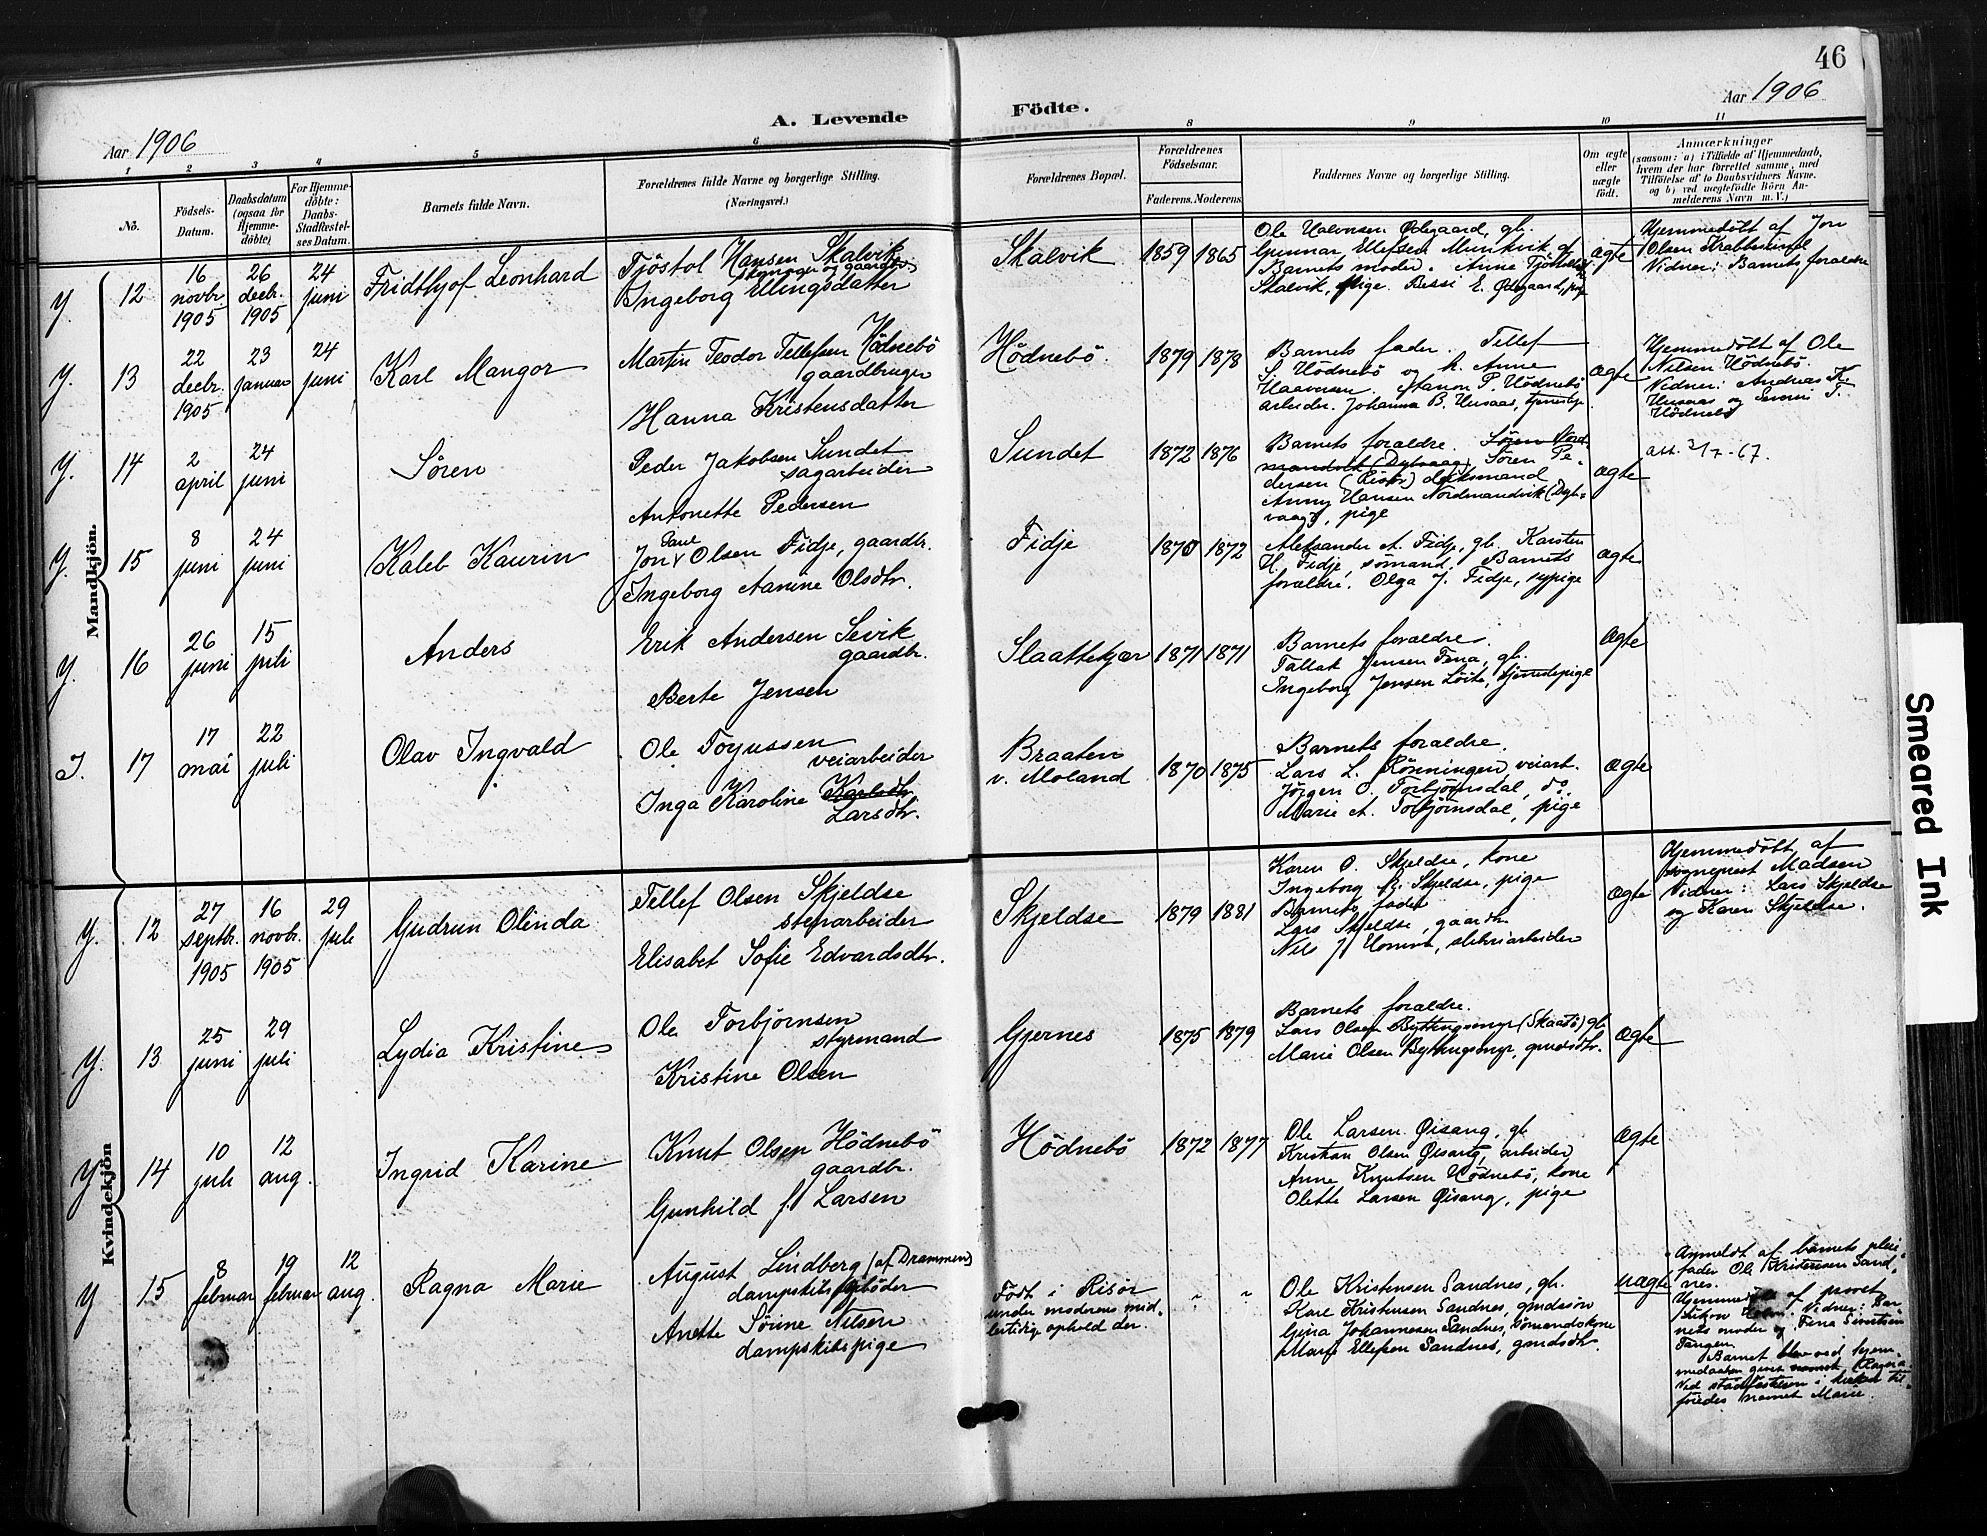 46
Aar 1906
A. Levende Födte.
Aar 1906
1 2 3 4 5 6 8 9 10 11
No.
Födsels-Datum.
Daabsdatum (ogsaa for Hjemmedöbte)
For Hjemmedöbte: Daabs-Stadfæstelses Datum.
Barnets fulde Navn.
Forældrenes fulde Navne og borgerlige Stilling.
(Næringsvei.)
Forældrenes Bopæl.
Forældrenes Födselsaar.
Faderens. Moderens.
Faddernes Navne og borgerlige Stilling.
Om ægte eller uægte födt.
Anmærkninger
(saasom: a) i Tilfælde af Hjemmedaab,
hvem der har forrettet samme, med
Tilföielse af to Daabsvidners Navne.
og b) ved uægtefödte Börn Anmelderens Navn m. V.)
Mandkjön.
Y. 12
16 novbr. 1905
26 decbr. 1905
24 juni
Fridthjof Leonhard
Tjöstol Hansen Skalvik
Ingeborg Ellingsdatter
Skalvik
1859 1865
Ole Halvorsen Ødegaard, gb.
Gunnar Ellefsen Munkvik og
Barnets moder. Anne
Skalvik, pige. E. Ødegaard, pige
ægte
Hjemmedöbt af Jon
Olsen
Vidner: Barnets foraldre
Y. 13
22 decbr. 1905
23 januar
24 juni
Karl Mangor
Martin Teodor Tellefsen Hödnebö
gaardbruger
Hanna Kristensdatter
Hödnebö.
1879 1878
Barnets fader. Tellef
S. Hödnebö og h. Anne
P. Hödnebö
arbeider. Johanna B.
ægte
Hjemmedöbt af Ole
Nilsen Hödnebö.
Vidner: Andreas K.
og T.
Hödnebö
Y. 14
2 april
24 juni
Sören
Peder Jakobsen Sundet
sagarbeider
Antonette Pedersen
Sundet
1872 1876
Barnets foraldre. Sören Nord-
mandvik (Dybvaag) Sören Pe-
dersen (Risör) dæksmand
Anny Hansen Nordmandvik (Dyb-
vaag), pige
ægte
Y. 15
8 juni
24 juni
Kaleb Kaurin
Paul
Jon Olsen Fidje, gaardbr.
Ingeborg Aanine Olsdtr.
Fidje
1870 1872
Aleksander A. Fidje, gb. Karsten
H. Fidje, sömand. Barnets
foraldre. Olga J. Fidje, sypige
ægte
Y. 16
26 juni
15 juli
Anders
Erik Andersen Sevik
gaardbr.
Berte Jensen
Slaattekjær
1871 1871
Barnets foraldre.
Tallak Jensen, gb.
Ingeborg Jensen, tjenestepige
ægte
J. 17
17 mai
22 juli
Olav Ingvald
Ole Torjussen
veiarbeider
Inga Karoline Karlsdtr.
Larsdtr.
Braaten
v. Moland
1870 1875
Barnets foraldre.
Lars L. Rönningen, veiarb.
Jörgen O. Torbjörnsdal, do.
Marie A. Torbjörnsdal, pige
ægte
Kvindekjön
Y. 12
27 septbr. 1905
16 novbr. 1905
29 juli
Gudrun Olinda
Tellef Olsen Skjeldse
stenarbeider
Elisabet Sofie Edvardsdtr.
Skjeldse
1879 1881
Karen O. Skjeldse, kone
Ingeborg Skjeldse, pige
Barnets fader
Lars Skjeldse, gaardbr.
Nils J.
ægte
Hjemmedöbt af
sogneprest Madsen
Vidner: Lars Skjeldse
og Karen Skjeldse.
Y. 13
25 juni
29 juli
Lydia Kristine
Ole Torbjörnsen
styrmand
Kristine Olsen
Gjernes
1875 1879
Barnets foraldre.
Lars Olsen Byttingsmyr (Skaatö) gb.
Marie Olsen Byttingsmyr, gmdsdtr.
ægte
Y 14
10 juli
12 aug.
Ingrid Karine
Knut Olsen Hödnebö
gaardbr.
Gunhild f. Larsen
Hödnebö
1872 1877
Ole Larsen Øisang, gb.
Kristian Olsen Øisang, arbeider
Anne Knutsen Hödnebö, kone
Olette Larsen Øisang, pige
ægte
Y 15
8 februar
19 februar
12 aug.
Ragna Marie
August Lindberg (af Drammen)
dampskibs
Anette Nilsen
dampskibspige
Födt i Risör
under moderens mid-
lertidige ophold der.
" "
Ole Kristensen Sandnes, gb.
Karl Kristensen Sandnes, gmdssön
Gina Johannesen Sandnes, sömandskone
Marie Ellefsen Sandnes, gmdsdtr.
uægte
Anmeldt af barnets pleie-
fader Ole Kristensen Sand-
nes.
Hjemmedöbt af provst
Vidner: Bar-
nets moder og
Tangen.
Barnet blev ved hjem-
medaaben givet navnet Ragna.
Ved stadfæstelsen i kirken til-
föiedes navnet Marie.
Smeared Ink